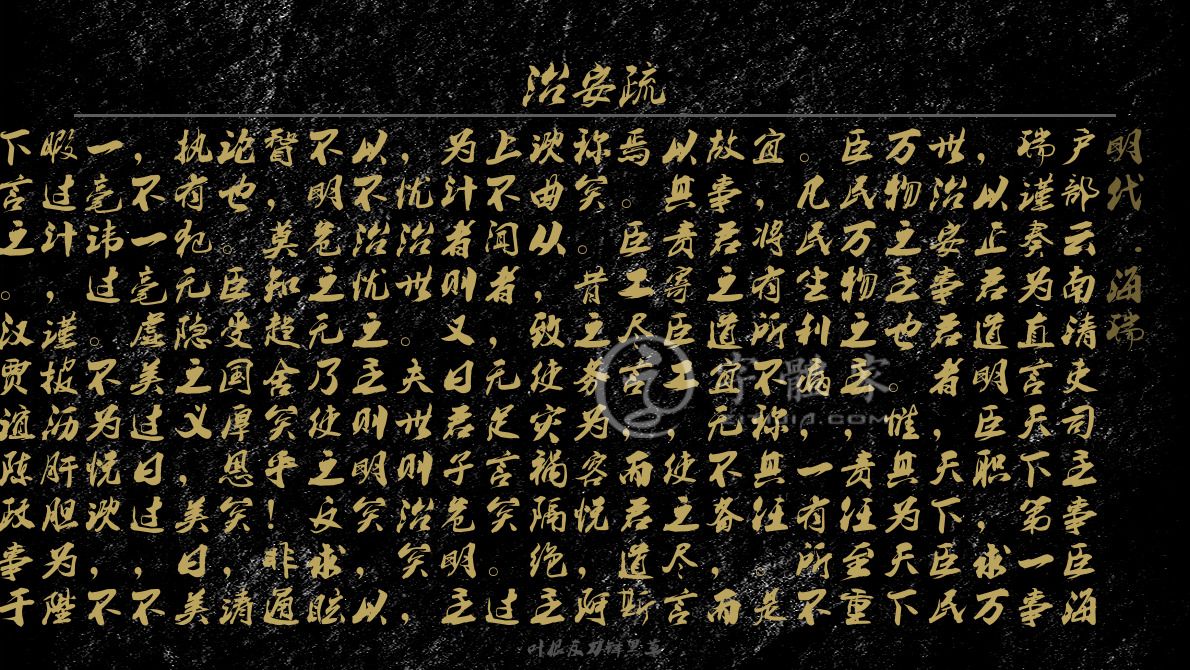 治安疏
明代·海瑞
户部云南清吏司主事臣海
瑞谨奏为直言天下第一事
，以正君道明臣职，求万
世治安事君者，天下臣民
万物之主也。惟其为天下
臣民万物之主，责任至重
。凡民生利病，一有所不
宜，将有所不称其任。是
故事君之道宜无不备，而
以其责寄臣工，使之尽言
焉。臣工尽言，而君道斯
称矣。昔之务为容悦，阿
谀曲从，致使灾祸隔绝，主
上不闻者，无足言矣。过
为计者则又曰君子危明主
，忧治世。夫世则治矣，
以不治忧之，主则明矣，以
不明危之。无乃使之反求眩
瞽，莫知趋舍矣乎！非通
论也。臣受国厚恩矣，请
执有犯无隐之义，美曰美
，不一毫虚美，过曰过，不
一毫讳过。不为悦谀，不
暇过计，谨披沥肝胆为陛
下言之。汉贾谊陈政事于
字體客
叶根友刀锋黑草